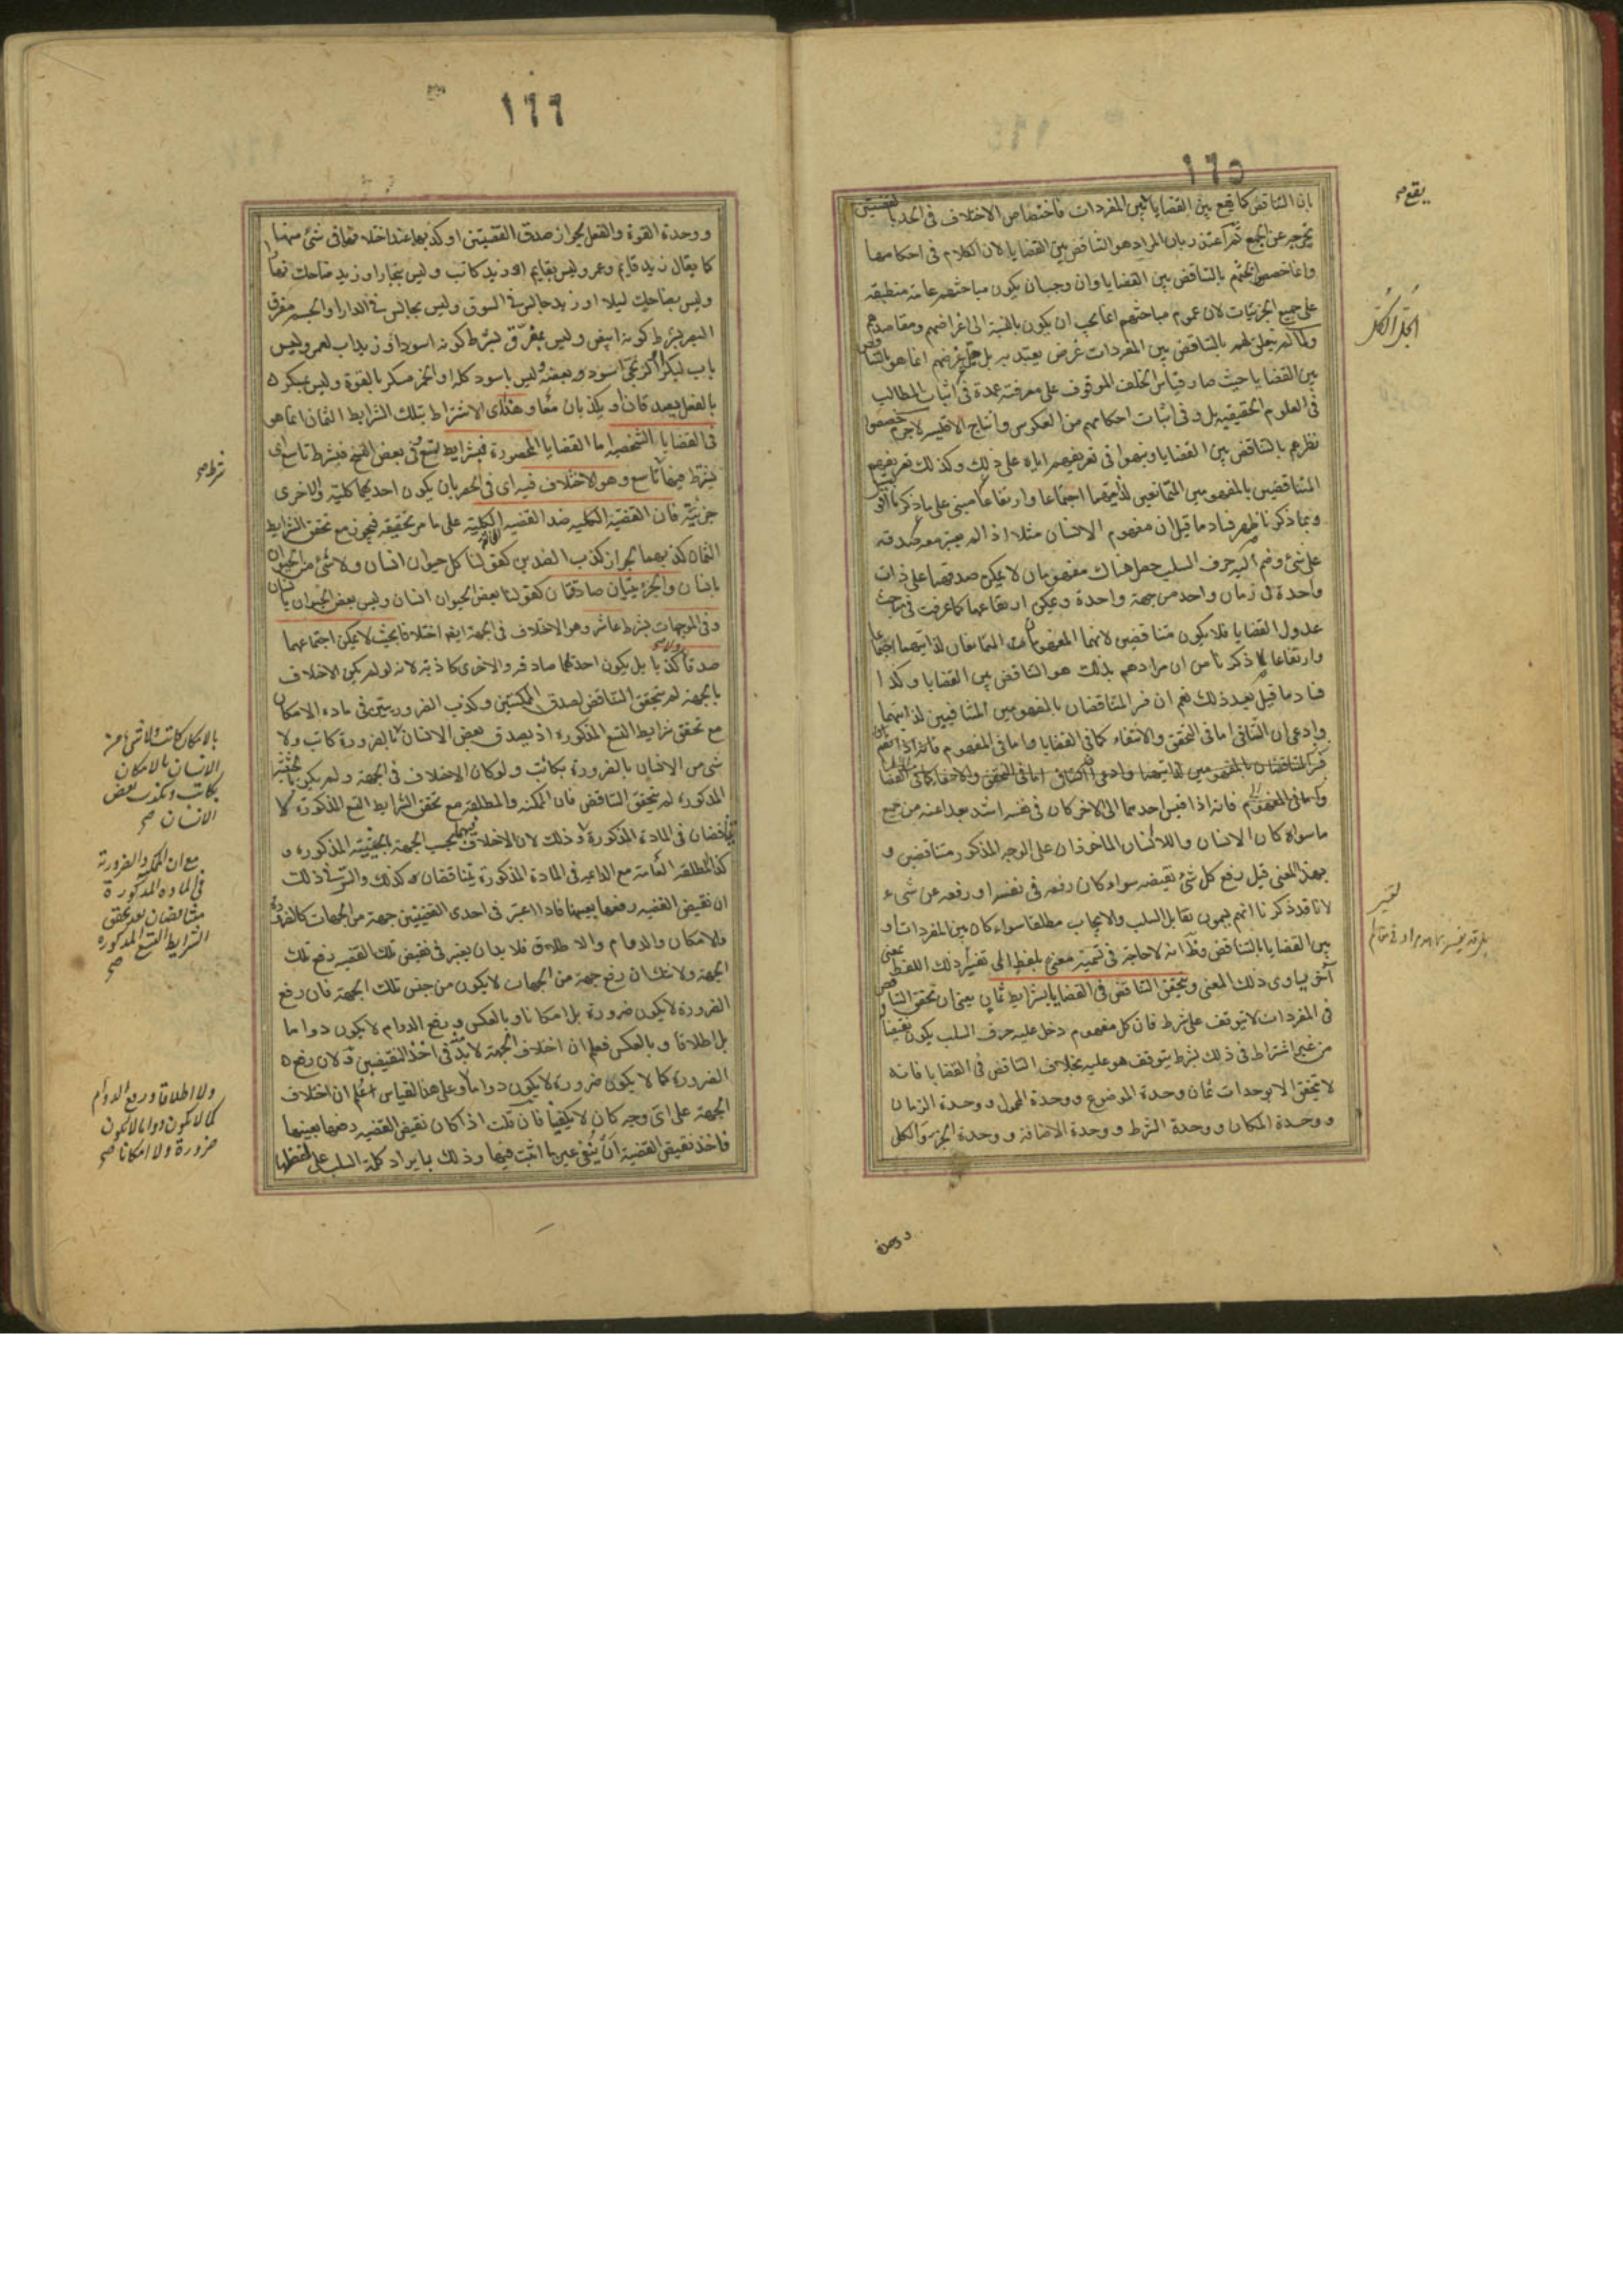 ١٦٥
بان التناقض كما يقع بين القضايا بين المفردات فاختصاص الاختلاف في الحد بالقضيتين
يخرجه عن الجمع ثم اعتذر بان المراد هو التناقض بين القضايا لان الكلام في احكامها
وانما خصصوا بحثهم بالتناقض بين القضايا وان وجب ان يكون مباحثهم عامة منطبقة
على جميع الجزئيات لان عموم مباحثهم انما يجب ان يكون بالنسبة الى اغراضهم ومقاصدهم
ولما لم يتعلق لهم بالتناقض بين المفردات غرض يعتد به بل جل غرضهم انما هو بالتناقض
بين القضايا حيث صار قياس الخلف الموقوف على معرفته عمدة في اثبات المطالب
في العلوم الحقيقية بل وفي اثبات احكامهم من العكوس وانتاج الاقيسة لاجرم خصصوا
نظرهم بالتناقض بين القضايا ونبهوا في تعريفهم اياه على ذلك وكذلك تعريفهم
المتناقضين بالمفهومين المتمانعين لذاتيهما اجتماعا وارتفاعا مبني على ما ذكرنا
وبما ذكرنا ظهر فساد ما قيل ان مفهوم الانسان مثلا اذا لم يعتبر معه صدقه
على شئ وضم اليه حرف السلب حصل هناك مفهومان لا يمكن صدقهما على ذات
واحدة في زمان واحد من جهة واحدة ويمكن ارتفاعهما كما عرفت في مباحث
عدول القضايا فلا يكون متناقضين لانهما المفهومان المتمانعان لذاتيهما اجتماعا
وارتفاعا لما ذكرنا من ان مرادهم بذلك هو التناقض بين القضايا وكذا
فساد ما قيل بعيد ذلك نعم ان فسر المتناقضان بالمفهومين المتنافيين لذاتيهما
وادعى ان التنافي اما في التحقق والانتفاء كما في القضايا واما في المفهوم فانه اذا
فسر المتناقضان بالمفهومين لذاتيهما وادعى ان التنافي اما في التحقق والانتفاء كما في القضايا
واما في المفهوم فانه اذا قيس احدهما الى الاخر كان في نفسه اشد بعدا عنه من جميع
ما سواه كان الانسان واللاانسان الماخوذان على الوجه المذكور متناقضين و
بهذا المعنى قيل رفع كل شئ نقيضه سواء كان رفعه في نفسه او رفعه عن شيء
لانا قد ذكرنا انهم يسمون تقابل السلب والايجاب مطلقا سواء كان بين المفردات او
بين القضايا بالتناقض وظ انه لا حاجة في تسمية معنى بلفظ الى تفسير ذلك اللفظ بمعنى
آخر يساوى ذلك المعنى ويتحقق التناقض في القضايا بشرايط ثمان يعني ان تحقق التناقض
في المفردات لا يتوقف على شرط فان كل مفهوم دخل عليه حرف السلب يكون نقيضا
من غير اشتراط في ذلك بشرط يتوقف هو عليه بخلاف التناقض في القضايا فانه
لا يتحقق الا بوحدات ثمان وحدة الموضوع ووحدة المحمول ووحدة الزمان
ووحدة المكان ووحدة الشرط ووحدة الاضافة ووحدة الجزء والكل
ووحدة
يقع صح
تفسير
١٦٦
ووحدة القوة والفعل لجواز صدق القضيتين او كذبهما عند اختلافهما في شئ منها
كما يقال زيد قايم وعمرو ليس بقايم او زيد كاتب وليس بنجار او زيد ضاحك نهارا
وليس بضاحك ليلا او زيد جالس في السوق وليس بجالس في الدار او الجسم مفرق
البصر بشرط كونه ابيض وليس بمفرق بشرط كونه اسود او زيد اب لعمرو وليس
باب لبكر او الزنجي اسود وبعضه وليس باسود كله او الخمر مسكر بالقوة وليس بمسكر
بالفعل يصدقان او يكذبان معا وهذا اى الاشتراط بتلك الشرايط الثمان انما هو
في القضايا الشخصية اما القضايا المحصورة فبشرايط تسع في بعض النسخ فبشرط تاسع اى
يشترط فيها تاسع وهو الاختلاف فيه اى في الحصر بان يكون احديهما كلية والاخرى
جزئية فان القضية الكلية ضد القضية الكلية على ما مر تحقيقه فيجوز مع تحقق الشرايط
الثمان كذبهما لجواز كذب الضدين كقولنا كل حيوان انسان ولا شئ من الحيوان
بانسان والجزئيتان صادقتان كقولنا بعض الحيوان انسان وليس بعض الحيوان بانسان
وفي الموجهات بشرط عاشر وهو الاختلاف في الجهة ايضا اختلافا بحيث لا يمكن اجتماعهما
صدقا ولا كذبا بل يكون احدهما صادقة والاخرى كاذبة لانه لو لم يكن الاختلاف
بالجهة لم يتحقق التناقض لصدق الممكنتين وكذب الضروريتين في مادة الامكان
مع تحقق شرايط التسع المذكورة اذ يصدق بعض الانسان بالضرورة كاتب ولا
شئ من الانسان بالضرورة بكاتب ولو كان الاختلاف في الجهة ولم يكن بالحيثية
المذكورة لم يتحقق التناقض فان الممكنة والمطلقة مع تحقق الشرايط التسع المذكورة لا
يتناقضان في المادة المذكورة وذلك لان الاختلاف بينهما بحسب الجهة بالحيثية المذكورة و
كذا المطلقة العامة مع الدائمة في المادة المذكورة يتناقضان كذلك والسر في ذلك
ان نقيض القضية رفعها بعينها فاذا اعتبر في احدى القضيتين جهة من الجهات كالضرورة
والامكان والدوام والاطلاق فلا بد ان يعتبر في نقيض تلك القضية رفع تلك
الجهة ولا شك ان رفع جهة من الجهات لا يكون من جنس تلك الجهة فان رفع
الضرورة لا يكون ضرورة بل امكانا وبالعكس ورفع الدوام لا يكون دواما
بل اطلاقا وبالعكس فعلم ان اختلاف الجهة لا بد منه في اخذ النقيضين لان رفع
الضرورة كما لا يكون ضرورة لا يكون دواما وعلى هذا القياس اعلم ان اختلاف
الجهة على اى وجه كان لا يكفينا فان قلت اذا كان نقيض القضية رفعها بعينها
فاخذ نقيض القضية ان ينفى عين ما اثبت فيها وذلك بايراد كلمة السلب على لفظها
شرط صح
بالامكان كاتب ولا شئ من
الانسان بالامكان
بكاتب ويكذب بعض
الانسان صح
مع ان الممكنة والضرورية
في المادة المذكورة
متناقضان بعد تحقق
الشرايط التسع المذكورة
صح
ولا اطلاقا ورفع الدوام
كما لا يكون دواما لا يكون
ضرورة ولا امكانا صح